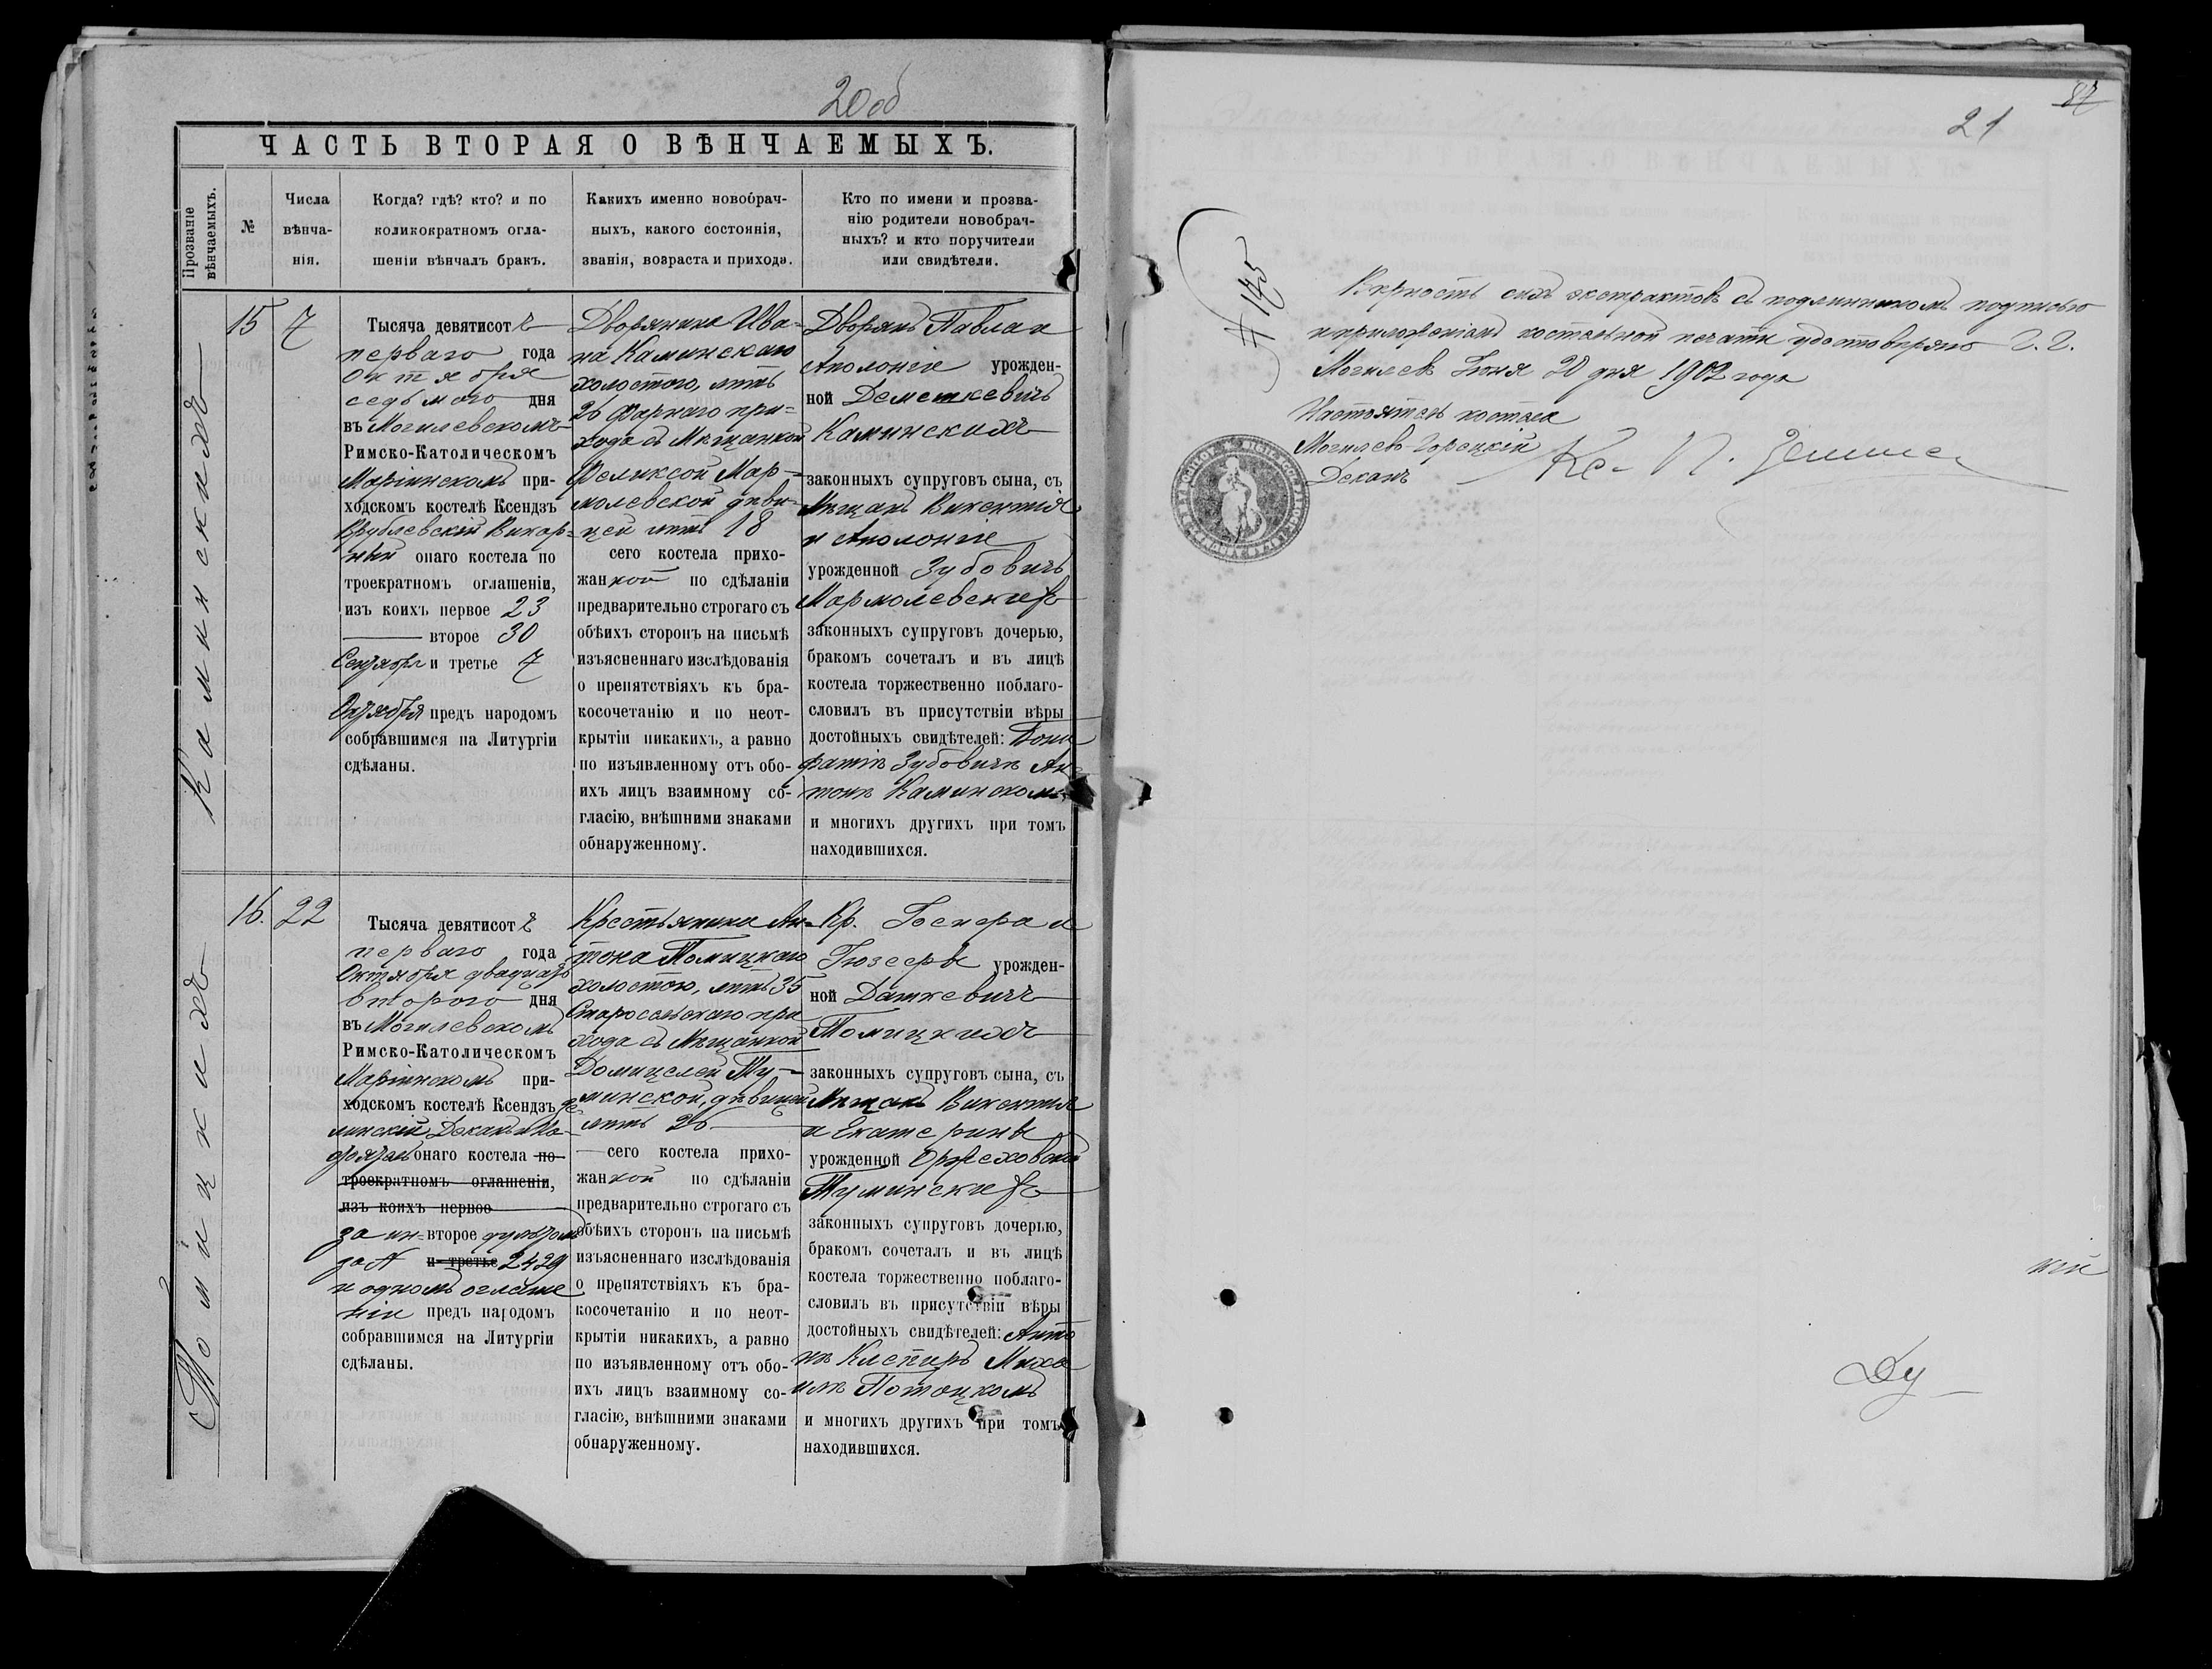 20об
ЧАСТЬ ВТОРАЯ О ВѢНЧАЕМЫХЪ.
Прозваніе
вѣнчаемыхъ.
№
Числа
вѣнча-
нія.
Когда? гдѣ? кто? и по
коликократномъ огла-
шеніи вѣнчалъ бракъ.
Какихъ именно новобрач-
ныхъ, какого состоянія,
званія, возраста и прихода.
Кто по имени и прозва-
нію родители новобрач-
ныхъ? и кто поручители
или свидѣтели.
Каминскихъ
15
7
Тысяча девятисот
перваго года
Октября
седьмого дня
въ Могилевскомъ
Римско-Католическомъ
Маріинскомъ при-
ходскомъ костелѣ Ксендзъ
Врублевскій Викар-
ный онаго костела по
троекратномъ оглашеніи,
изъ коихъ первое 23
второе 30
Сентября и третье 7
Октября предъ народомъ
собравшимся на Литургіи
сдѣланы.
Дворянина Ива-
на Каминскаго
холостого, лѣтъ
26 Фарнаго при-
хода съ Мѣщанкой
Феликсой Мар-
молевской дѣви-
цей лѣтъ 18
сего костела прихо-
жанкой по сдѣланіи
предварительно строгаго съ
обѣихъ сторонъ на письмѣ
изъясненнаго изслѣдованія
о препятствіяхъ къ бра-
косочетанію и по неот-
крытіи никакихъ, а равно
по изъявленному отъ обо-
ихъ лицъ взаимному со-
гласію, внѣшними знаками
обнаруженному.
Дворянъ Павла и
Аполоніи урожден-
ной Деметкевичъ
Каминскихъ
законныхъ супруговъ сына, съ
Мѣщанъ Викентія
и Аполоніи
урожденной Зубовичъ
Мармолевскихъ
законныхъ супруговъ дочерью,
бракомъ сочеталъ и въ лицѣ
костела торжественно поблаго-
словилъ въ присутствіи вѣры
достойныхъ свидѣтелей: Бони
фатіѣ Зубовичѣ Ан-
тонѣ Каминскомъ
и многихъ другихъ при томъ
находившихся.
Томицкихъ
16.
22
Тысяча девятисот
перваго года
Октября двадцать
второго дня
въ Могилевскомъ
Римско-Католическомъ
Маріинскомъ при-
ходскомъ костелѣ Ксендзъ Зе-
линскій Деканъ На-
стоятель онаго костела по
троекратномъ оглашеніи,
изъ коихъ первое
за ин- второе дультомъ
за № и третье 2429
и одномъ оглаше
ніи предъ народомъ
собравшимся на Литургіи
сдѣланы.
Крестьянина Ан-
тона Томицкаго
холостого, лѣтъ 35
Старосельскаго при
хода съ Мѣщанкой
Домицелей Ту-
минской, дѣвицей
лѣтъ 26
сего костела прихо-
жанкой по сдѣланіи
предварительно строгаго съ
обѣихъ сторонъ на письмѣ
изъясненнаго изслѣдованія
о препятствіяхъ къ бра-
косочетанію и по неот-
крытіи никакихъ, а равно
по изъявленному отъ обо-
ихъ лицъ взаимному со-
гласію, внѣшними знаками
обнаруженному.
Кр. Гаспера и
Іюзефы урожден-
ной Даткевичъ
Томицкихъ
законныхъ супруговъ сына, съ
Мѣщанъ Викентія
и Екатерины
урожденной Оржеховской
Туминскихъ
законныхъ супруговъ дочерью,
бракомъ сочеталъ и въ лицѣ
костела торжественно поблаго-
словилъ въ присутствіи вѣры
достойныхъ свидѣтелей: Анто
нѣ Михаи
илѣ Потоцкомъ
и многихъ другихъ при томъ
находившихся.
21
Вѣрность сихъ экстрактовъ съ подлинникомъ подписью
и приложеніемъ костельной печати удостовѣряю Г. Г.
Могилевъ Іюня 20 дня 1902 года
Настоятель костела
Могилевъ-Горецкій
Деканъ Кс. П. Зелинс
кій
Ду